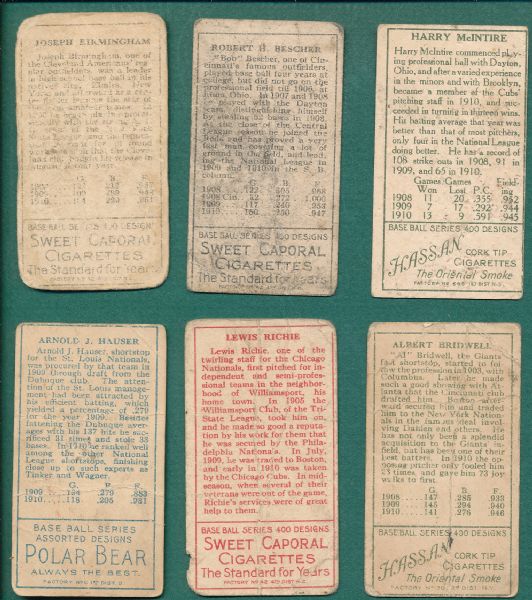 JOSEPH BIRMINGHAM
Joseph Birmingham, one of
the Cleveland Americans' reg-
ular outfielders, was a leader
in
York and
BASE BALL SERIES 400 DESIGNS
SWEET CAPORAL
CIGARETTES
The Standard for Years
ROBERT H. BESCHER
"Bob" Bescher, one of Cin-
cinnati's famous outfielders,
played base ball four years at
college, but did not go on the
professional field till 1906, at
Lima, Ohio. In 1907 and 1908
he played with the Dayton
team, distinguishing himself
by stealing 65 bases in 1908.
At the close of the Central
League season he joined the
Reds and has proved a very
fast man, covering a lot of
ground in the field, and lead-
ing the National League in
1909 and 1910 in the S. B.
column.
G. B. F.
BASE BALL SERIES 400 DESIGNS
SWEET CAPORAL
CIGARETTES
The Standard for Years
HARRY McINTIRE
Harry McIntire commenced play-
ing professional ball with Dayton,
Ohio, and after a varied experience
in the minors and with Brooklyn,
became a member of the Cubs'
pitching staff in 1910, and suc-
ceeded in turning in thirteen wins.
His batting average that year was
better than that of most pitchers,
only four in the National League
doing better. He has a record of
108 strike outs in 1908, 91 in
1909, and 65 in 1910.
Games Games Field-
Won Lost P.C. ing
1908 11 20 .355 952
1909 7 17 .292 .944
1910 13 9 .591 .945
BASE BALL SERIES 400 DESIGNS
HASSAN
CORK TIP
CIGARETTES
The Oriental Smoke
FACTORY No 649 1st DIST. N.Y.
ARNOLD J. HAUSER
Arnold J. Hauser, shortstop
for the St. Louis Nationals,
was procured by that team in
1909 through draft from the
Dubuque club. The atten-
tion of the St. Louis manage-
ment had been attracted by
his efficient batting, which
yielded a percentage of .270
for the year 1909. Besides
fattening the Dubuque aver-
ages with his 137 hits he sac-
rificed 31 times and stole 35
bases. In 1910 he ranked well
among the other National
League shortstops, finishing
close up to such experts as
Tinker and Wagner.
G. B. F.
1909 134 .270 .883
1910 118 .205 .931
BASE BALL SERIES
ASSORTED DESIGNS
POLAR BEAR
ALWAYS THE BEST.
LEWIS RICHIE
Lewis Richie, one of the
twirling staff for the Chicago
Nationals, first pitched for in-
dependent and semi-profes-
sional teams in the neighbor-
hood of Williamsport, his
home town. In 1905 the
Williamsport Club, of the Tri-
State League, took him on,
and he made so good a reputa-
tion by his work for them that
he was secured by the Phila-
delphia Nationals. In July,
1909, he was traded to Boston,
and early in 1910 was taken
by the Chicago Cubs. In mid-
season, when several of their
veterans were out of the game,
Richie's services were of great
help to them.
BASE BALL SERIES 400 DESIGNS
SWEET CAPORAL
CIGARETTES
The Standard for Years
ALBERT BRIDWELL
"Al" Bridwell, the Giants'
fast shortstop, started to fol-
low the profession in 1903, with
Columbus. Later he made
such a good showing with At-
lanta that the Cincinnati club
drafted him. Boston after-
ward secured him and traded
him to the New York Nation-
als in the famous deal involv-
ing Dahlen and others. He
has not only been a splendid
acquisition to the Giants in-
field, but has been one of their
best batters. In 1910 the op-
posing pitcher only fooled him
23 times, and gave him 73 joy
walks to first.
G. B. F.
1908 147 .285 .933
1909 145 .294 .940
1910 141 .276 .946
BASE BALL SERIES 400 DESIGNS
HASSAN
CORK TIP
CIGARETTES
The Oriental Smoke